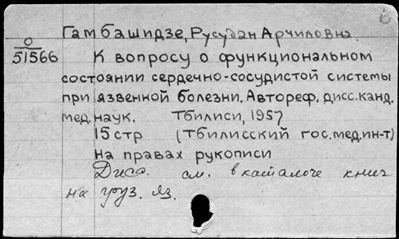 Гамбашидзе, Русудан Арчиловна.
О
51566
К вопросу о функциональном
состоянии сердечно-сосудистой системы
при язвенной болезни. Автореф. дисс. канд.
мед. наук. Тбилиси, 1957
15 стр (Тбилисский гос. мед. ин-т)
На правах рукописи
Дисс. см. в каталоге книг
на груз. яз.